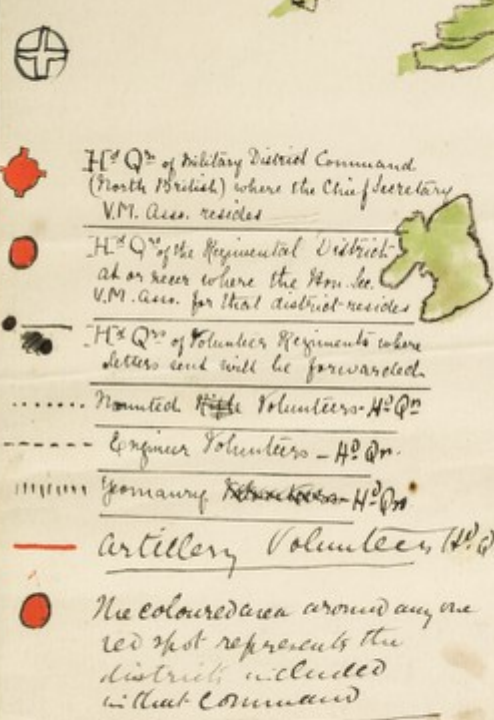 Hd Qrs of Military District Command
(North British) where the Chief Secretary
V.M. Asso. resides
Hd Qrs of the Regimental District
at or near where the Hon. Sec.
V.M. Asso. for that district resides
Hd Qrs of Volunteer Regiments where
letters sent will be forwarded
Mounted Rifle Volunteers - Hd Qrs
Engineer Volunteers - Hd Qrs.
Yeomanry Volunteers - Hd Qrs
Artillery Volunteers (Hd Q
The coloured area around any one
red spot represents the
districts included
in that Command